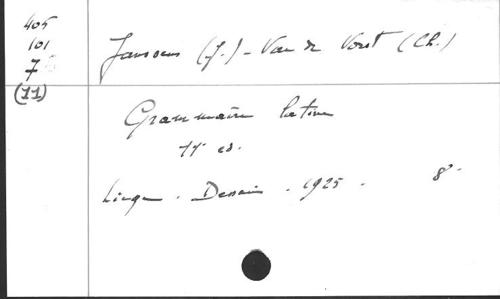 405
101
7
(11)
Janssens (J.) - Van de Vorst (Ch.)
Grammaire latine
11e ed.
Liège . Dessain . 1925 . 8°